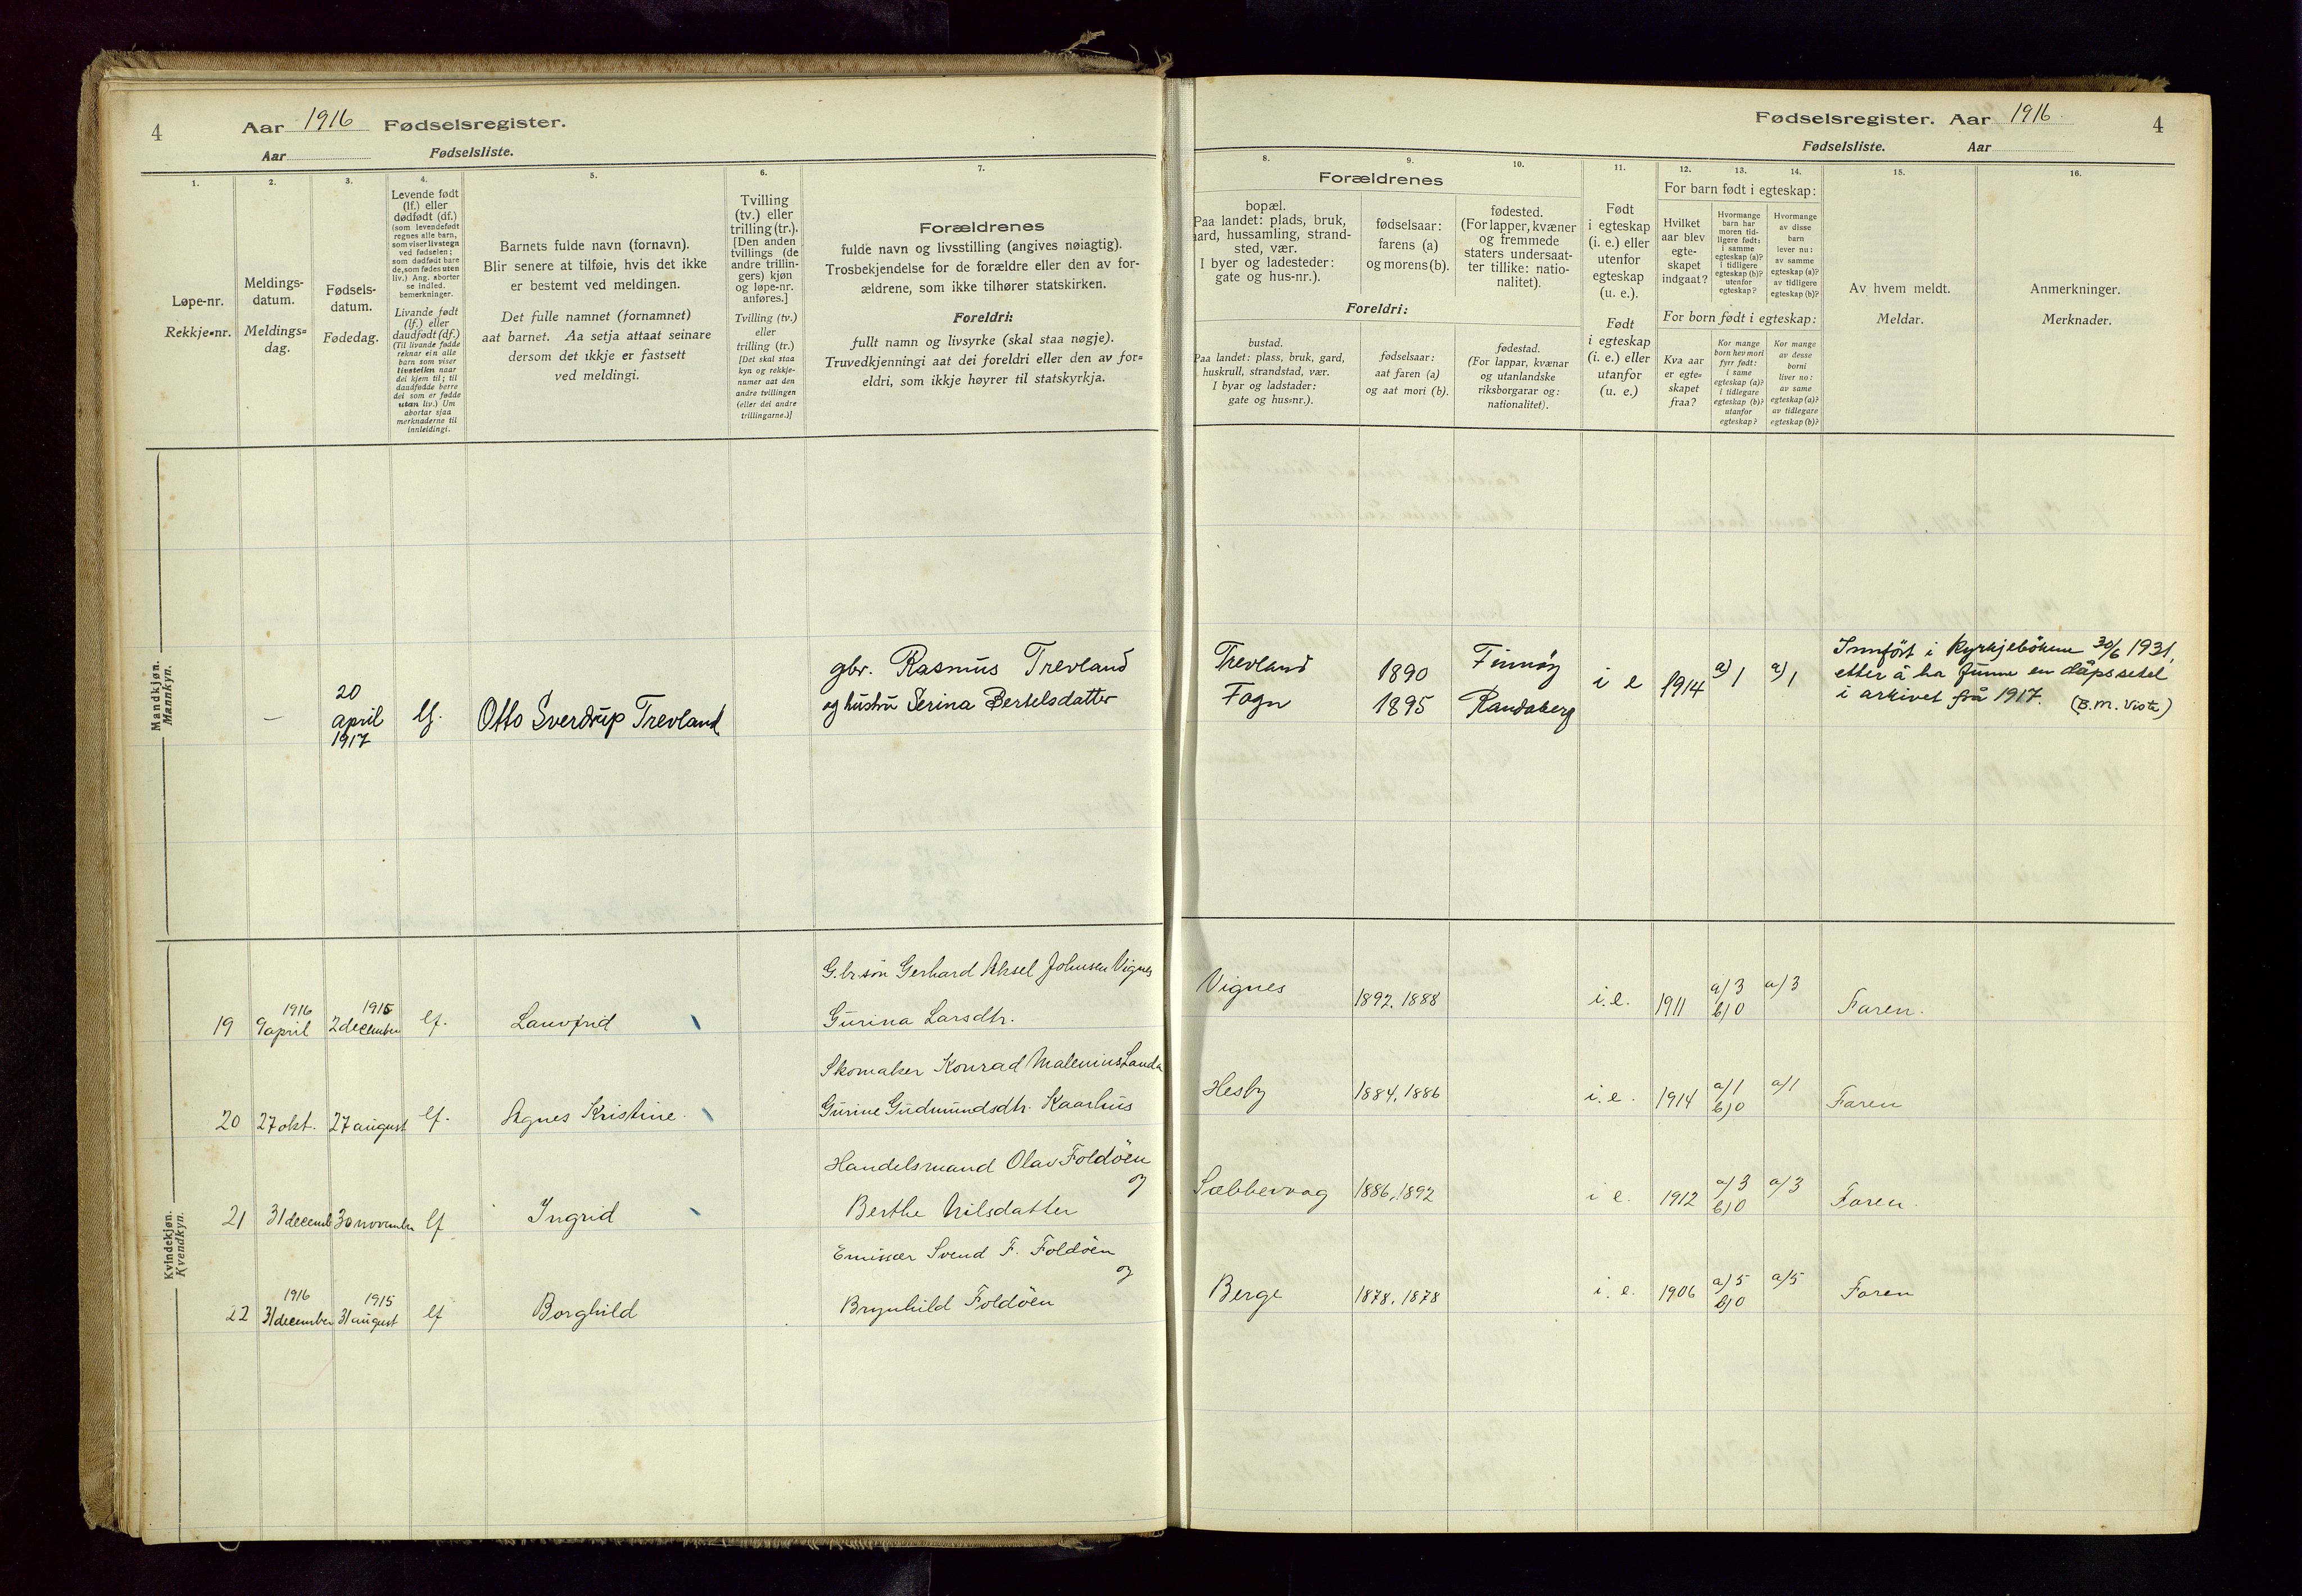 4
Aar 1916 Fødselsregister.
Aar Fødselsliste.
1.
Løpe-nr.
Rekkje-nr.
2.
Meldings-
datum.
Meldings-
dag.
3.
Fødsels-
datum.
Fødedag.
4.
Levende født
(lf.) eller
dødfødt (df.)
(som levendefødt
regnes alle barn,
som viser livstegn
ved fødselen;
som dødfødt bare
de, som fødes uten
liv.) Ang. aborter
se indled.
bemerkninger.
Livande født
(lf.) eller
daudfødt (df.)
(Til livande fødde
reknar ein alle
barn som viser
livsteikn naar
dei kjem til; til
daudfødde berre
dei som er fødde
utan liv.) Um
abortar sjaa
merknaderne til
innleidingi.
5.
Barnets fulde navn (fornavn).
Blir senere at tilføie, hvis det ikke
er bestemt ved meldingen.
Det fulle namnet (fornamnet)
aat barnet. Aa setja attaat seinare
dersom det ikkje er fastsett
ved meldingi.
6.
Tvilling
(tv.) eller
trilling (tr.).
[Den anden
tvillings (de
andre trillin-
gers) kjøn
og løpe-nr.
anføres.]
Tvilling (tv.)
eller
trilling (tr.)
[Det skal staa
kyn og rekkje-
numer aat den
andre tvillingen
(eller dei andre
trillingarne.)]
7.
Forældrenes
fulde navn og livsstilling (angives nøiagtig).
Trosbekjendelse for de forældre eller den av for-
ældrene, som ikke tilhører statskirken.
Foreldri:
fullt namn og livsyrke (skal staa nøgje).
Truvedkjenningi aat dei foreldri eller den av for-
eldri, som ikkje høyrer til statskyrkja.
Mandkjøn.
Mannkyn.
—
20
april
1917
lf.
Otto Sverdrup Trevland
gbr. Rasmus Trevland
og hustru Serina Bertelsdatter
Kvindekjøn.
Kvendkyn.
19
1916
9 april
1915
2 december
lf.
Lauvfrid
G.br.søn Gerhard Aksel Johnsen Vignes
Gurina Larsdtr.
20
27 okt.
27 august
lf.
Agnes Kristine.
Skomaker Konrad Malenius Landa
Gurine Gudmundsdtr. Kaarhus
21
31 decemb
30 november
lf
Ingrid
Handelsmand Olav Foldöen
og
Berthe Nilsdatter
22
1916
31 december
1915
31 august
lf
Borghild
Emissær Svend F. Foldöen
og
Brynhild Foldöen
Fødselsregister. Aar 1916.
4
Fødselsliste. Aar
8.
9.
10.
Forældrenes
bopæl.
Paa landet: plads, bruk,
gaard, hussamling, strand-
sted, vær.
I byer og ladesteder:
gate og hus-nr.).
fødselsaar:
farens (a)
og morens (b).
fødested.
(For lapper, kvæner
og fremmede
staters undersaat-
ter tillike: natio-
nalitet).
Foreldri:
bustad.
Paa landet: plass, bruk, gard,
huskrull, strandstad, vær.
I byar og ladstader:
gate og hus-nr.).
fødselsaar:
aat faren (a)
og aat mori (b).
fødestad.
(For lappar, kvænar
og utanlandske
riksborgarar og:
nationalitet).
11.
Født
i egteskap
(i. e.) eller
utenfor
egteskap
(u. e.).
Født
i egteskap
(i. e.) eller
utanfor
(u. e.)
12.
13.
14.
For barn født i egteskap:
Hvilket
aar blev
egte-
skapet
indgaat?
Hvormange
barn har
moren tid-
ligere født:
i samme
egteskap (a)?
i tidligere
egteskap (b)?
utenfor
egteskap?
Hvormange
av disse
barn
lever nu:
av samme
egteskap (a)?
av tidligere
egteskap (b)?
For born født i egteskap:
Kva aar
er egte-
skapet
fraa?
Kor mange
born hev mori
fyrr født:
i same
egteskap (a)?
i tidlegare
egteskap (b)?
utanfor
egteskap?
Kor mange
av desse
borni
liver no:
av same
egteskap (a)?
av tidlegare
egteskap (b)?
15.
Av hvem meldt.
Meldar.
16.
Anmerkninger.
Merknader.
Trevland
Fogn
1890
1895
Finnöy
Randaberg
i e
1914
a) 1
a) 1
Innfört i Kyrkjeböken 30/6 1931,
etter å ha funne en dåpssetel
i arkivet frå 1917. (B.M. Viste)
Vignes
1892. 1888
i.e.
1911
a) 3
b) 0
a) 3
Faren.
Hesby
1884. 1886
i. e.
1914
a) 1
b) 0
a) 1
Faren
1886. 1892
i e.
1912
a) 3
b) 0
a) 3
Faren.
Berge
1878. 1878
i. e.
1906
a) 5
b) 0
a) 5
Faren